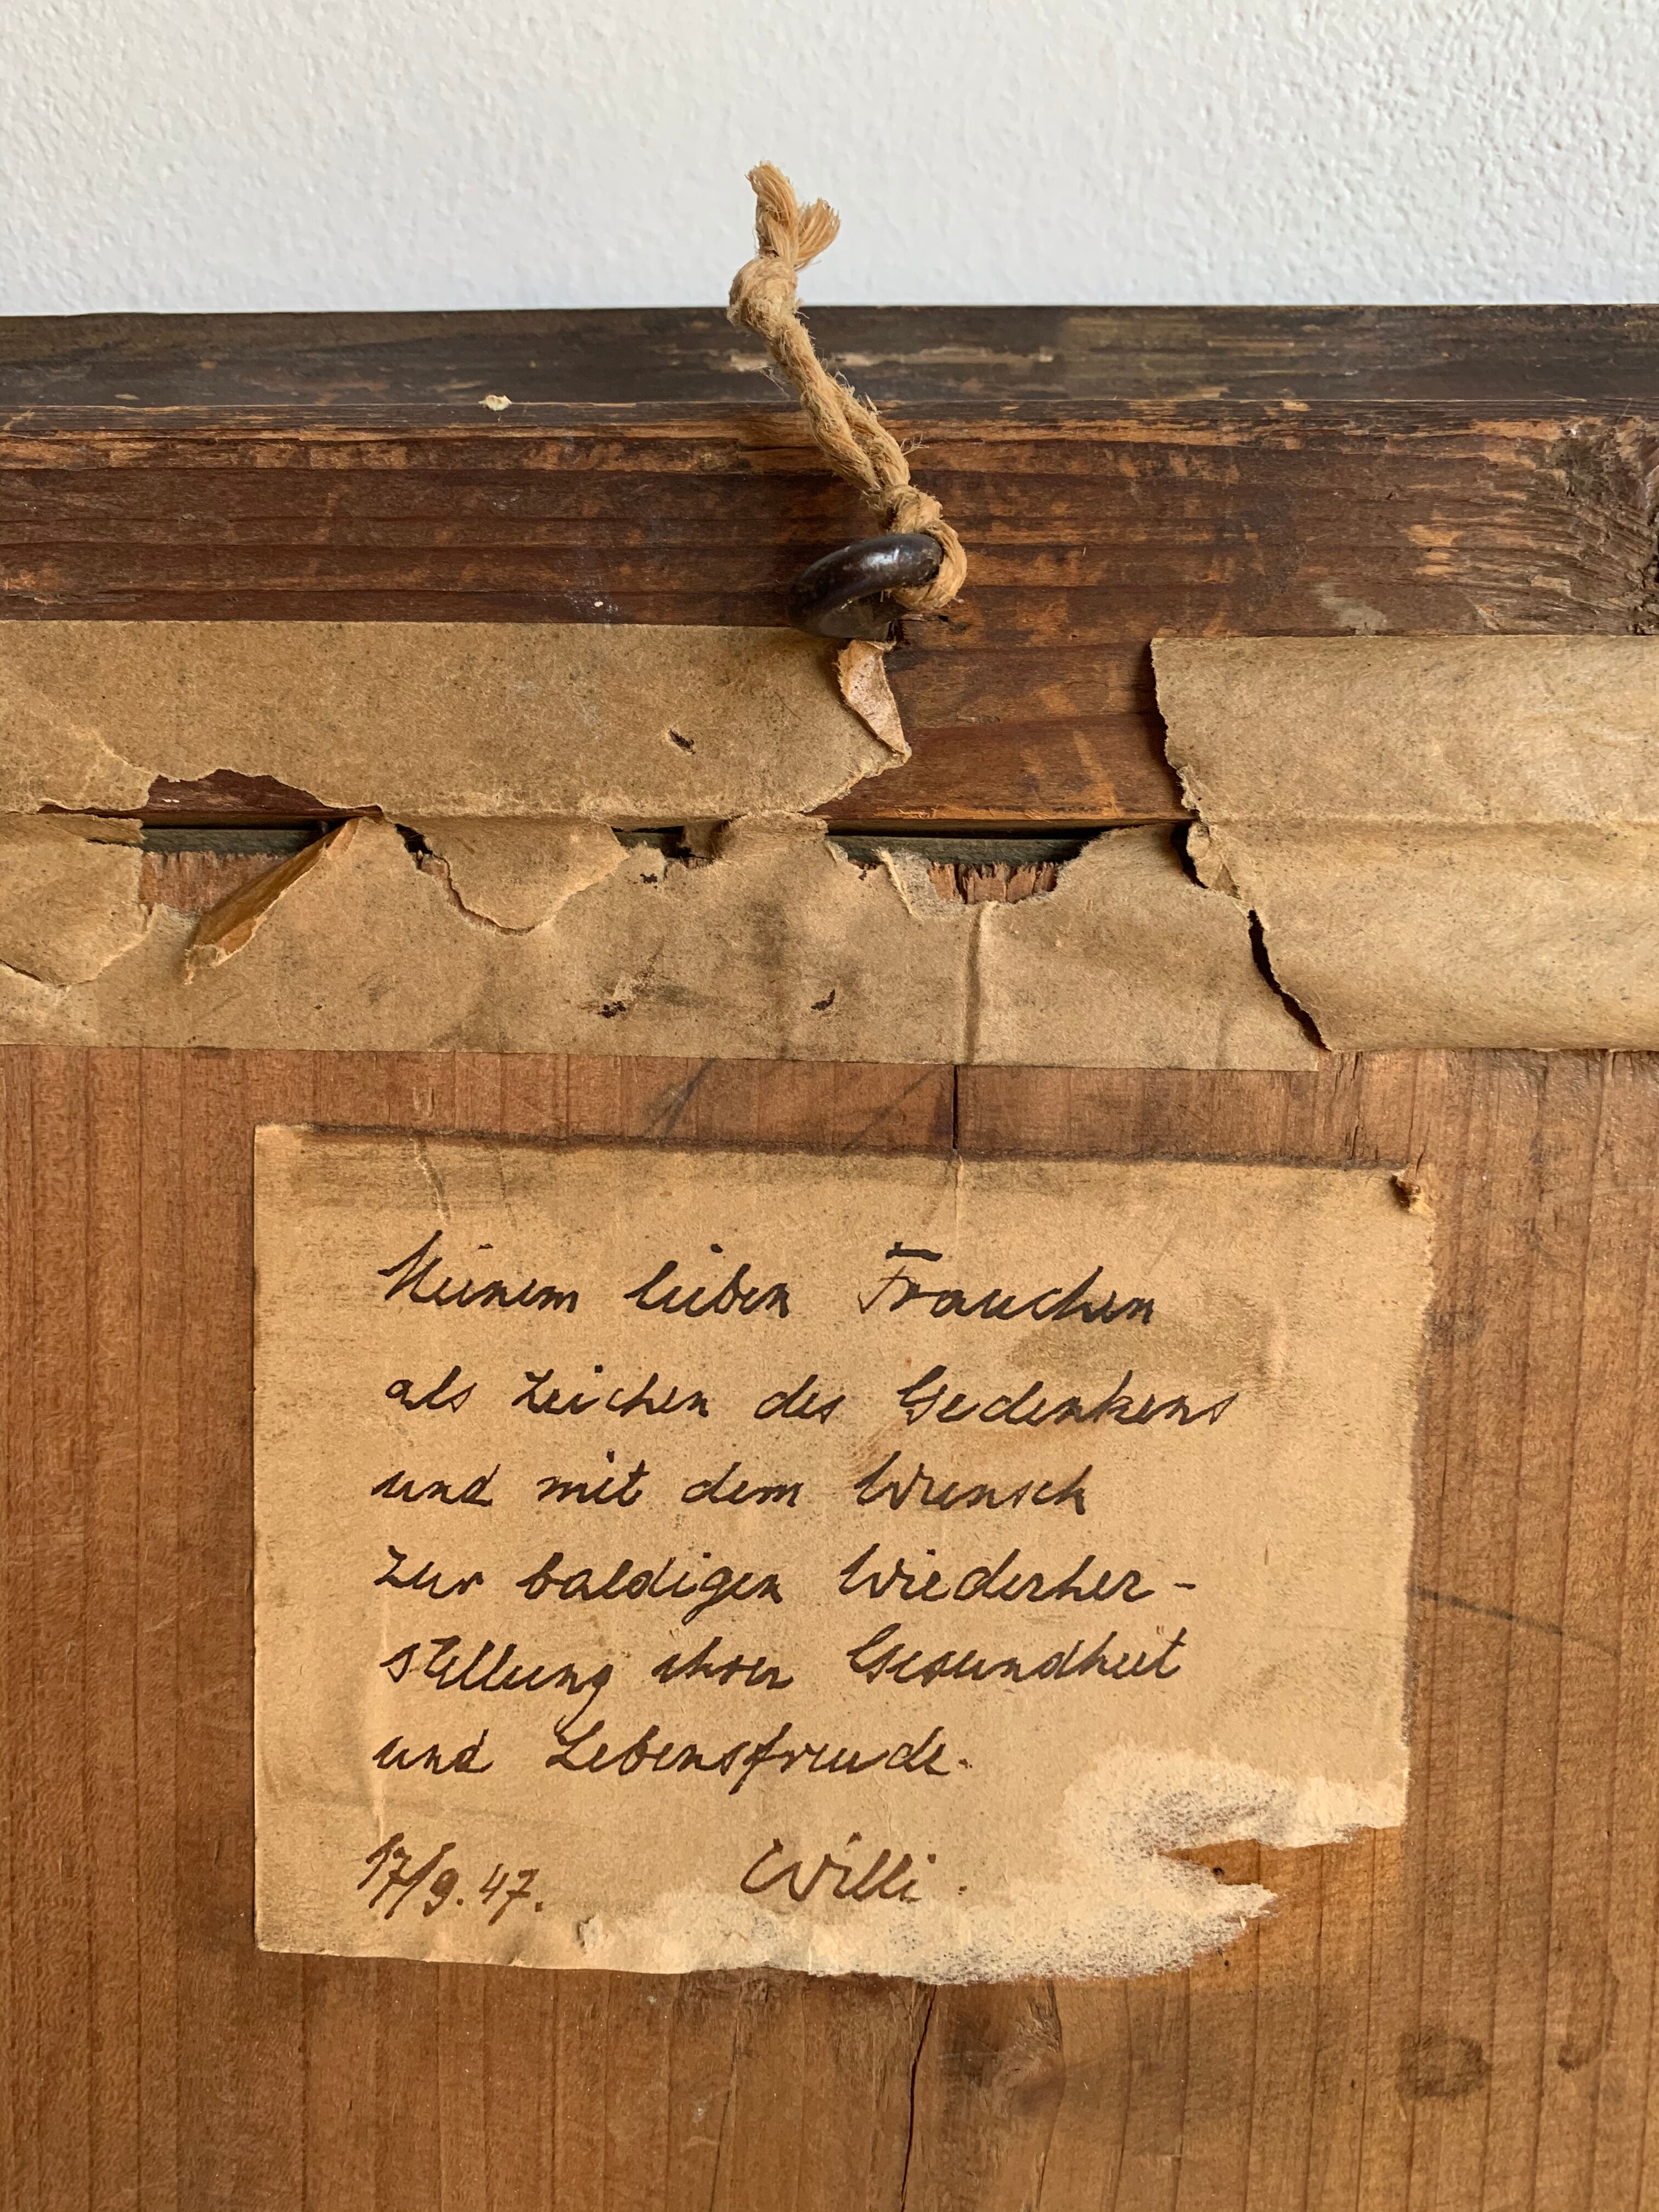 Meinem lieben Frauchen
als Zeichen des Gedenkens
und mit dem Wunsch
zur baldigen Wiederher-
stellung ihrer Gesundheit
und Lebensfreude.
17/9.47. Willi.